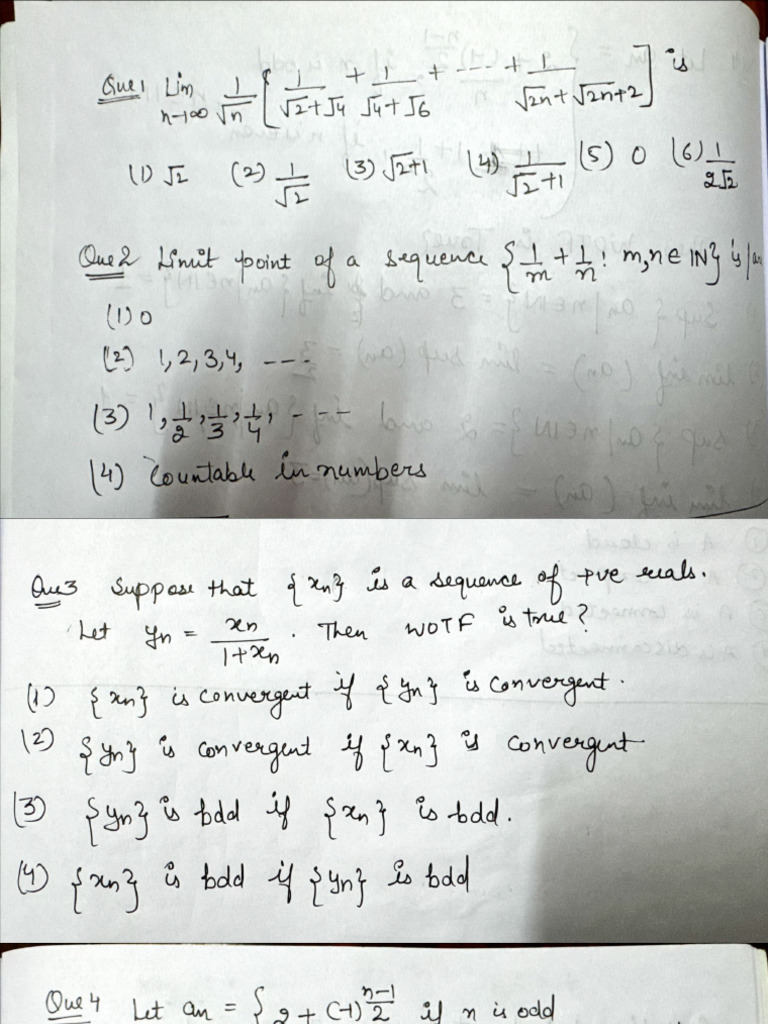 Que1 Lim n→∞ 1/√n [ 1/(√2+√4) + 1/(√4+√6) + --- + 1/(√2n+√2n+2) ] is
(1) √2 (2) 1/√2 (3) √2+1 (4) 1/(√2+1) (5) 0 (6) 1/2√2
Que2 Limit point of a sequence {1/m + 1/n : m,n ∈ IN} is/
(1) 0
(2) 1,2,3,4, ---
(3) 1, 1/2, 1/3, 1/4, ---
(4) Countable in numbers
Que3 Suppose that {xn} is a sequence of +ve reals.
Let yn = xn/(1+xn). Then WOTF is true?
(1) {xn} is convergent if {yn} is convergent.
(2) {yn} is convergent if {xn} is convergent
(3) {yn} is bdd if {xn} is bdd.
(4) {xn} is bdd if {yn} is bdd
Que4 Let an = { 2 + (-1)^((n-1)/2) if n is odd